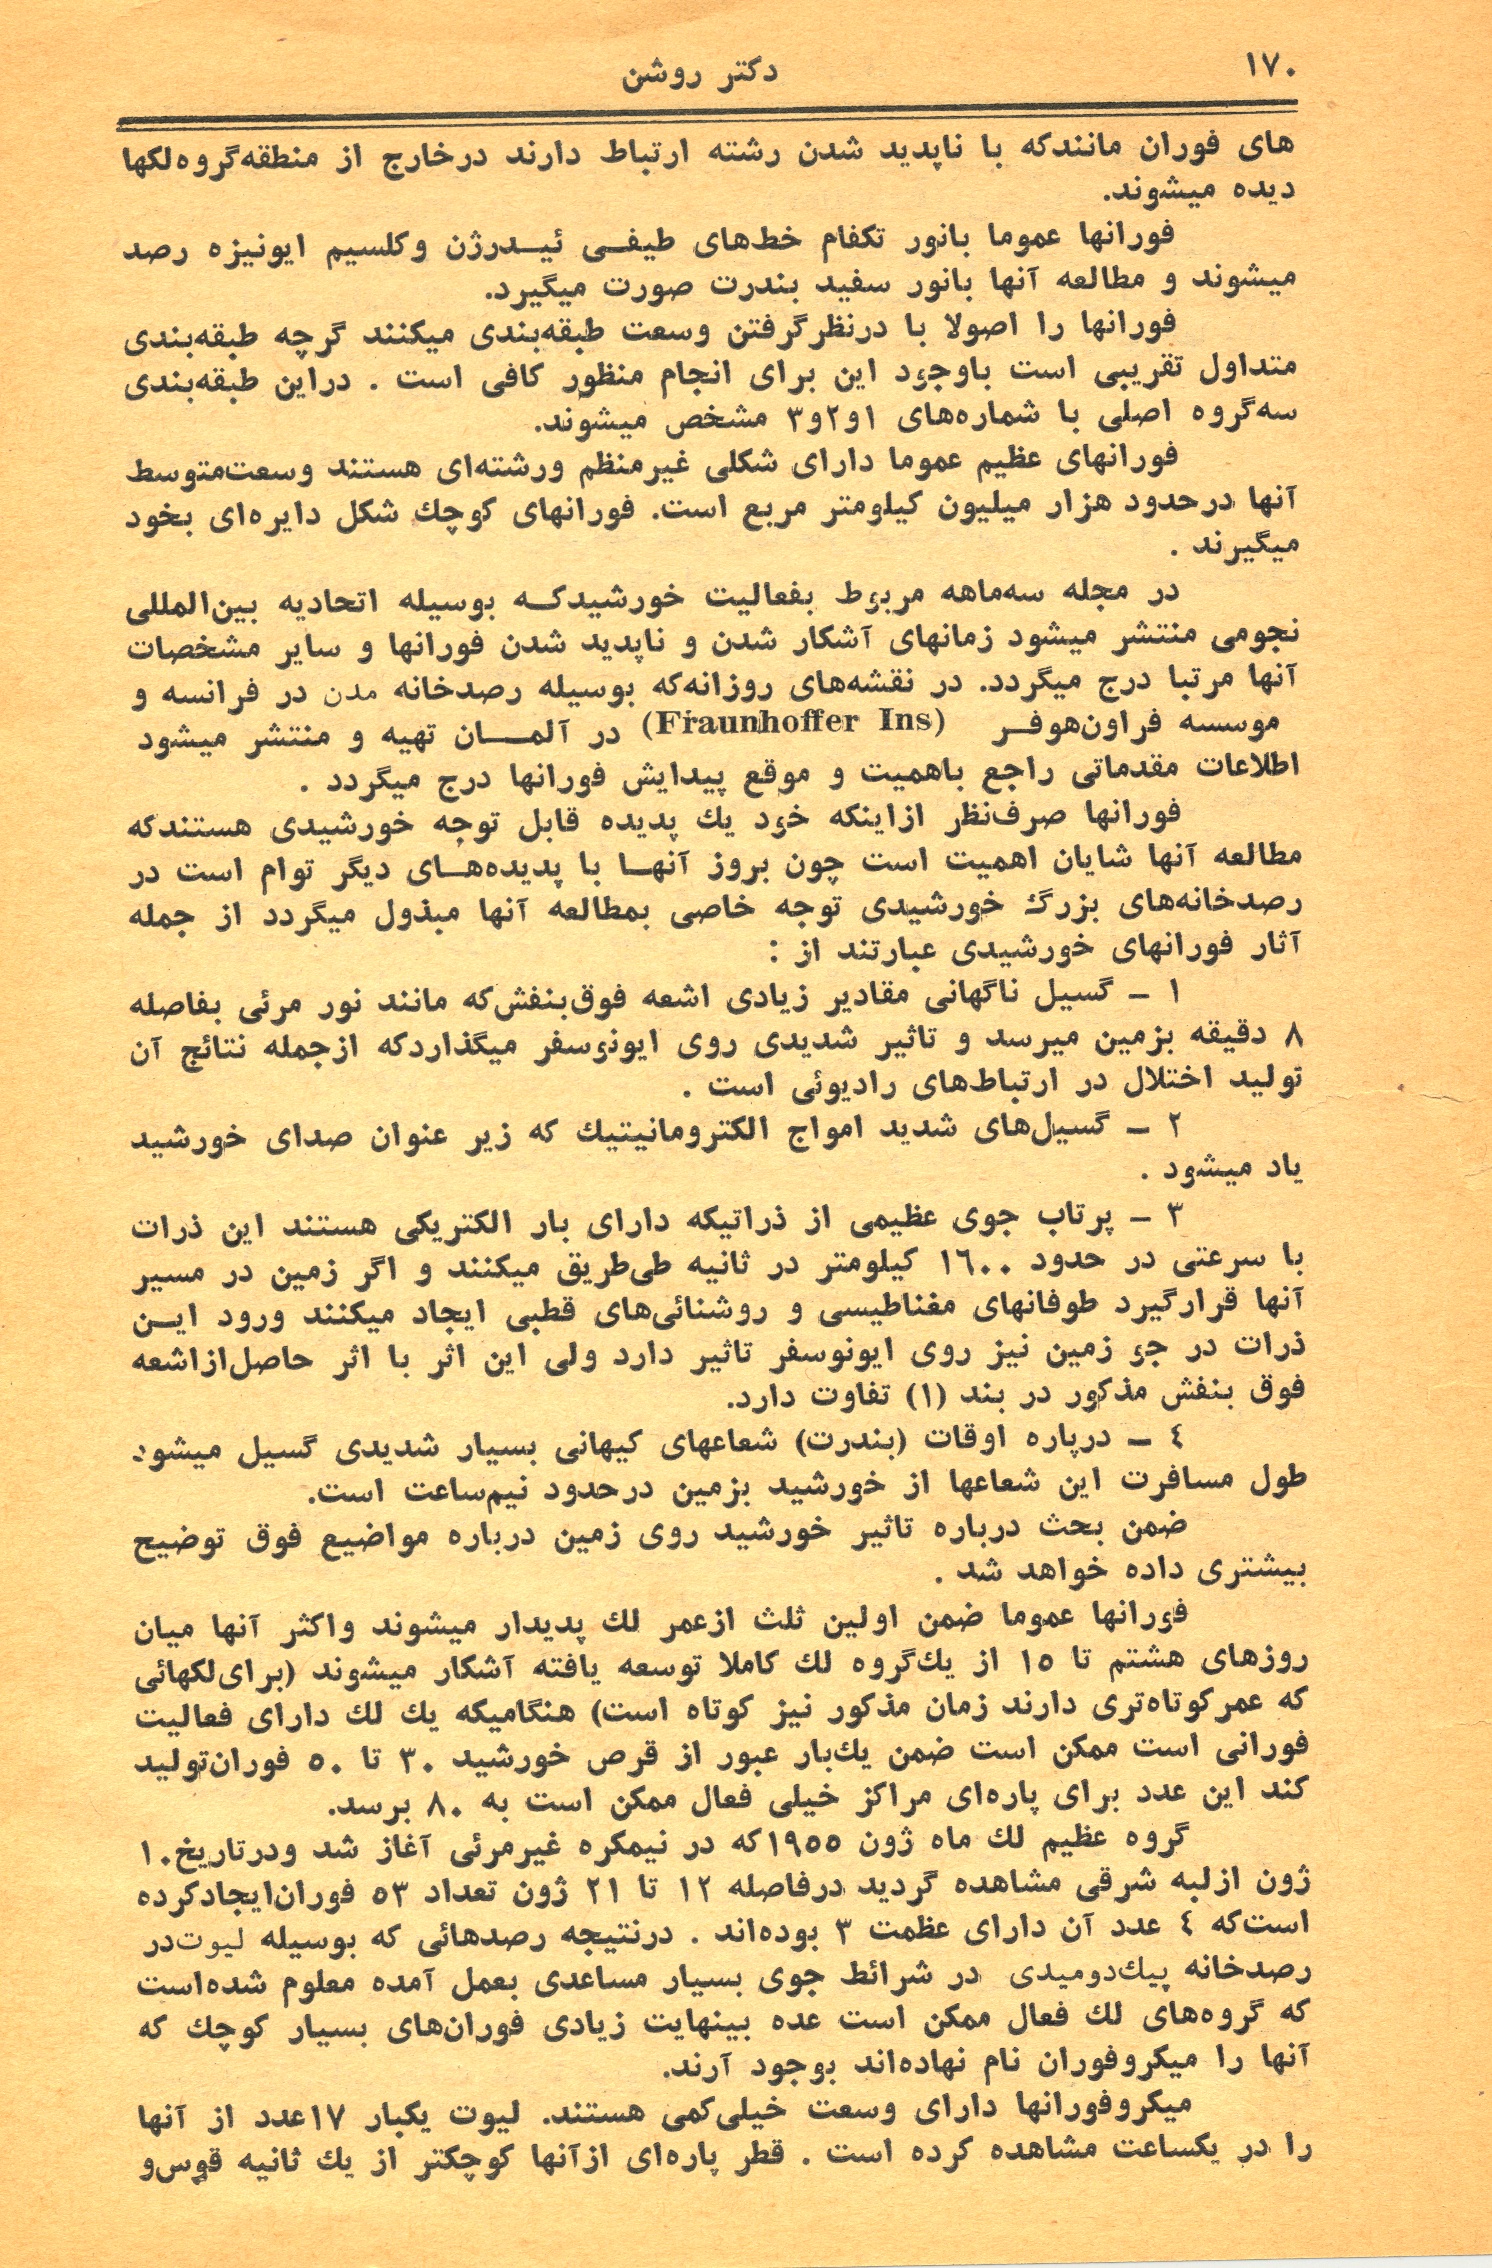 ۱۷۰
دکتر روشن
های فوران مانندکه با ناپدید شدن رشته ارتباط دارند درخارج از منطقه‌گروه‌لکها
دیده میشوند.
فورانها عموما بانور تکفام خط‌های طیفـی ئیـدرژن وکلسیم ایونیزه رصد
میشوند و مطالعه آنها بانور سفید بندرت صورت میگیرد.
فورانها را اصولا با درنظرگرفتن وسعت طبقه‌بندی میکنند گرچه طبقه‌بندی
متداول تقریبی است باوجود این برای انجام منظور کافی است . دراین طبقه‌بندی
سه‌گروه اصلی با شماره‌های ۱و۲و۳ مشخص میشوند.
فورانهای عظیم عموما دارای شکلی غیرمنظم ورشته‌ای هستند وسعت‌متوسط
آنها درحدود هزار میلیون کیلومتر مربع است. فورانهای کوچك شکل دایره‌ای بخود
میگیرند .
در مجله سه‌ماهه مربوط بفعالیت خورشیدکـه بوسیله اتحادیه بین‌المللی
نجومی منتشر میشود زمانهای آشکار شدن و ناپدید شدن فورانها و سایر مشخصات
آنها مرتبا درج میگردد. در نقشه‌های روزانه‌که بوسیله رصدخانه مدن در فرانسه و
موسسه فراون‌هوفـر (Fraunhoffer Ins) در آلمـــان تهیه و منتشر میشود
اطلاعات مقدماتی راجع باهمیت و موقع پیدایش فورانها درج میگردد .
فورانها صرف‌نظر ازاینکه خود یك پدیده قابل توجه خورشیدی هستندکه
مطالعه آنها شایان اهمیت است چون بروز آنهـا با پدیده‌هـای دیگر توام است در
رصدخانه‌های بزرگ خورشیدی توجه خاصی بمطالعه آنها مبذول میگردد از جمله
آثار فورانهای خورشیدی عبارتند از :
۱ ـ گسیل ناگهانی مقادیر زیادی اشعه فوق‌بنفش‌که مانند نور مرئی بفاصله
۸ دقیقه بزمین میرسد و تاثیر شدیدی روی ایونوسفر میگذاردکه ازجمله نتائج آن
تولید اختلال در ارتباط‌های رادیوئی است .
۲ ـ گسیل‌های شدید امواج الکترومانیتیك که زیر عنوان صدای خورشید
یاد میشود .
۳ ـ پرتاب جوی عظیمی از ذراتیکه دارای بار الکتریکی هستند این ذرات
با سرعتی در حدود ۱٦۰۰ کیلومتر در ثانیه طی‌طریق میکنند و اگر زمین در مسیر
آنها قرارگیرد طوفانهای مغناطیسی و روشنائی‌های قطبی ایجاد میکنند ورود ایـن
ذرات در جو زمین نیز روی ایونوسفر تاثیر دارد ولی این اثر با اثر حاصل‌ازاشعه
فوق بنفش مذکور در بند (۱) تفاوت دارد.
٤ ـ درپاره اوقات (بندرت) شعاعهای کیهانی بسیار شدیدی گسیل میشود
طول مسافرت این شعاعها از خورشید بزمین درحدود نیم‌ساعت است.
ضمن بحث درباره تاثیر خورشید روی زمین درباره مواضیع فوق توضیح
بیشتری داده خواهد شد .
فورانها عموما ضمن اولین ثلث ازعمر لك پدیدار میشوند واکثر آنها میان
روزهای هشتم تا ۱٥ از یك‌گروه لك کاملا توسعه یافته آشکار میشوند (برای‌لکهائی
که عمرکوتاه‌تری دارند زمان مذکور نیز کوتاه است) هنگامیکه یك لك دارای فعالیت
فورانی است ممکن است ضمن یك‌بار عبور از قرص خورشید ۳۰ تا ٥۰ فوران‌تولید
کند این عدد برای پاره‌ای مراکز خیلی فعال ممکن است به ۸۰ برسد.
گروه عظیم لك ماه ژون ۱۹٥٥که در نیمکره غیرمرئی آغاز شد ودرتاریخ۱۰
ژون ازلبه شرقی مشاهده گردید درفاصله ۱۲ تا ۲۱ ژون تعداد ٥۳ فوران‌ایجادکرده
است‌که ٤ عدد آن دارای عظمت ۳ بوده‌اند . درنتیجه رصدهائی که بوسیله لیوت‌در
رصدخانه پیك‌دومیدی در شرائط جوی بسیار مساعدی بعمل آمده معلوم شده‌است
که گروه‌های لك فعال ممکن است عده بینهایت زیادی فوران‌های بسیار کوچك که
آنها را میکروفوران نام نهاده‌اند بوجود آرند.
میکروفورانها دارای وسعت خیلی‌کمی هستند. لیوت یکبار ۱۷عدد از آنها
را در یکساعت مشاهده کرده است . قطر پاره‌ای ازآنها کوچکتر از یك ثانیه قوس‌و